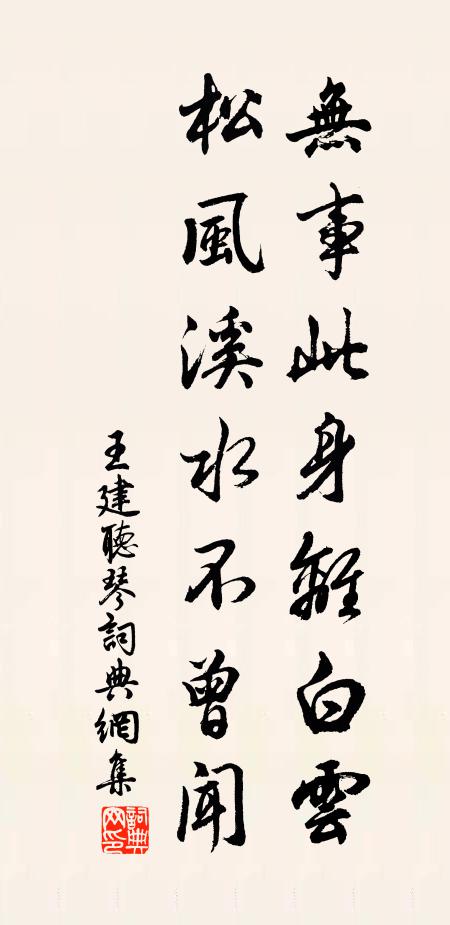 無事此身離白雲
松風溪水不曾聞
王建聽琴詞典網集
詞典
网印